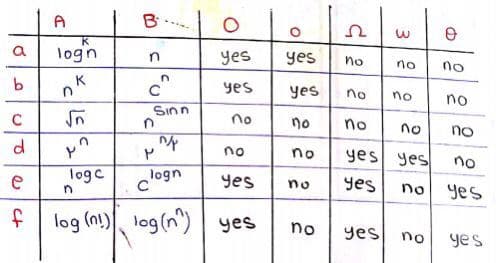 A B O o Ω ω θ
a logᵏn n yes yes no no no
b nᵏ cⁿ yes yes no no no
c √n n^sin n no no no no no
d ۲ⁿ ۲^n/۲ no no yes yes no
e n^log c c^log n yes no yes no yes
f log(n!) log(nⁿ) yes no yes no yes